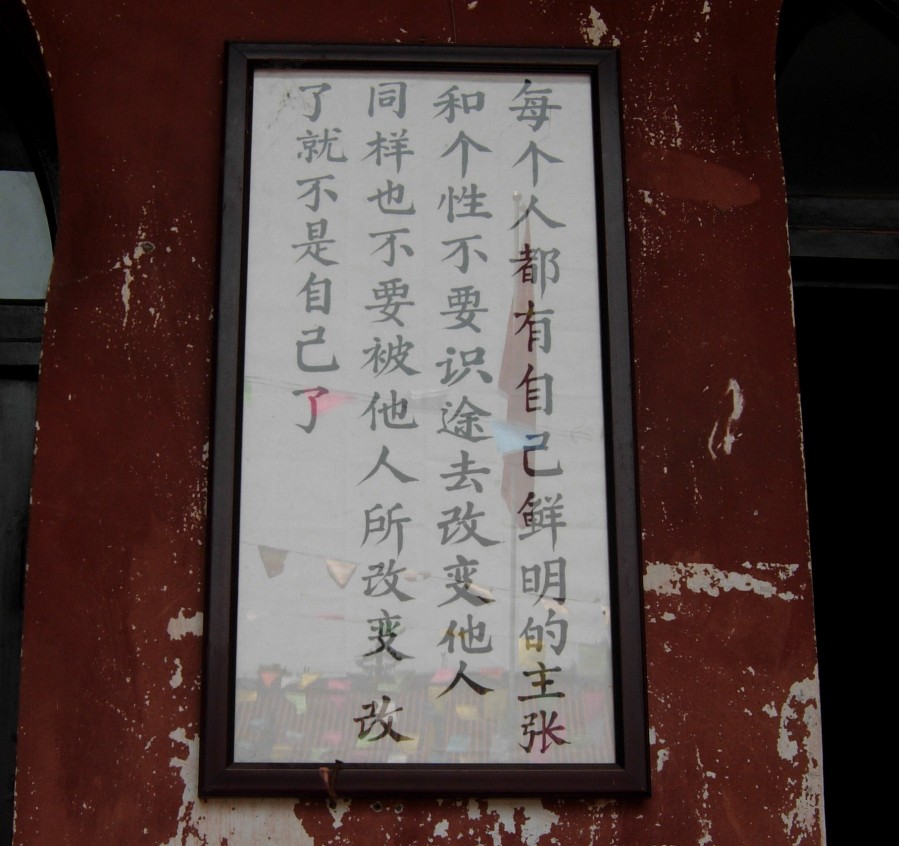 每个人都有自己鲜明的主张
和个性不要识途去改变他人
同样也不要被他人所改变 改
了就不是自己了